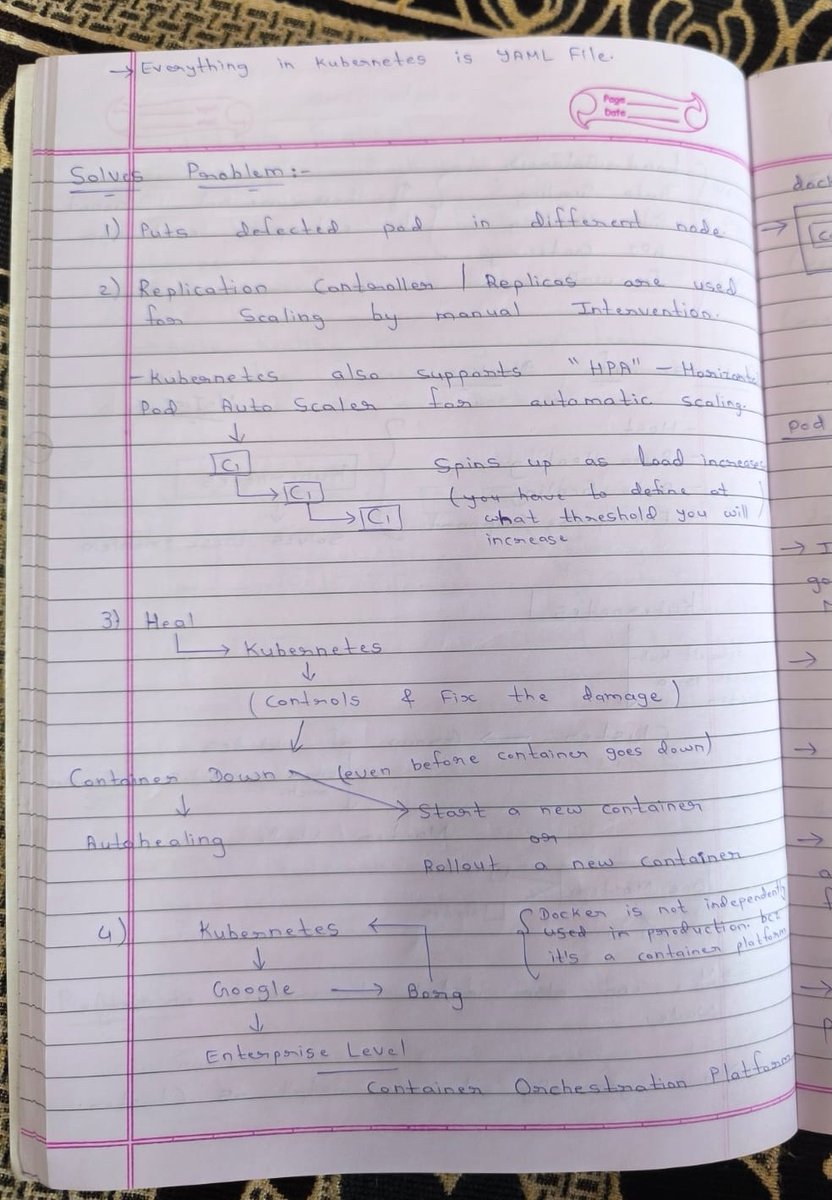 → Everything in Kubernetes is YAML File.
Page
Date
Solves Problem:-
1) Puts defected pod in different node.
2) Replication Controller / Replicas are used
for Scaling by manual Intervention.
- Kubernetes also supports "HPA" - Horizont
Pod Auto Scaler for automatic scaling.
↓
C1
C1
C1
Spins up as load increases
(you have to define at
what threshold you will)
increase
3) Heal
→ Kubernetes
↓
(Controls & Fix the damage)
↓
Container Down (even before container goes down)
↓
→ Start a new container
Autohealing
or
Rollout a new container
4) Kubernetes ←
↓
Google → Borg
↓
Enterprise Level
Container Orchestration Platform
{ Docker is not independently
used in production. bcz
it's a container platform
dock
→
Pod
→ I
go
→
→
→
a
f
→
P